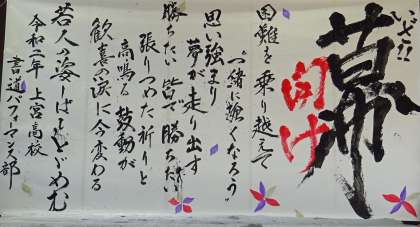 いざ!!
幕開け
困難を乗り越えて
"一緒に強くなろう"
思い強まり
夢が走り出す
勝ちたい 皆で勝ちたい
張りつめた祈りと
高鳴る鼓動が
歓喜の涙に今変わる
若人の姿しばしとどめむ
令和二年 上宮高校
書道パフォーマンス部